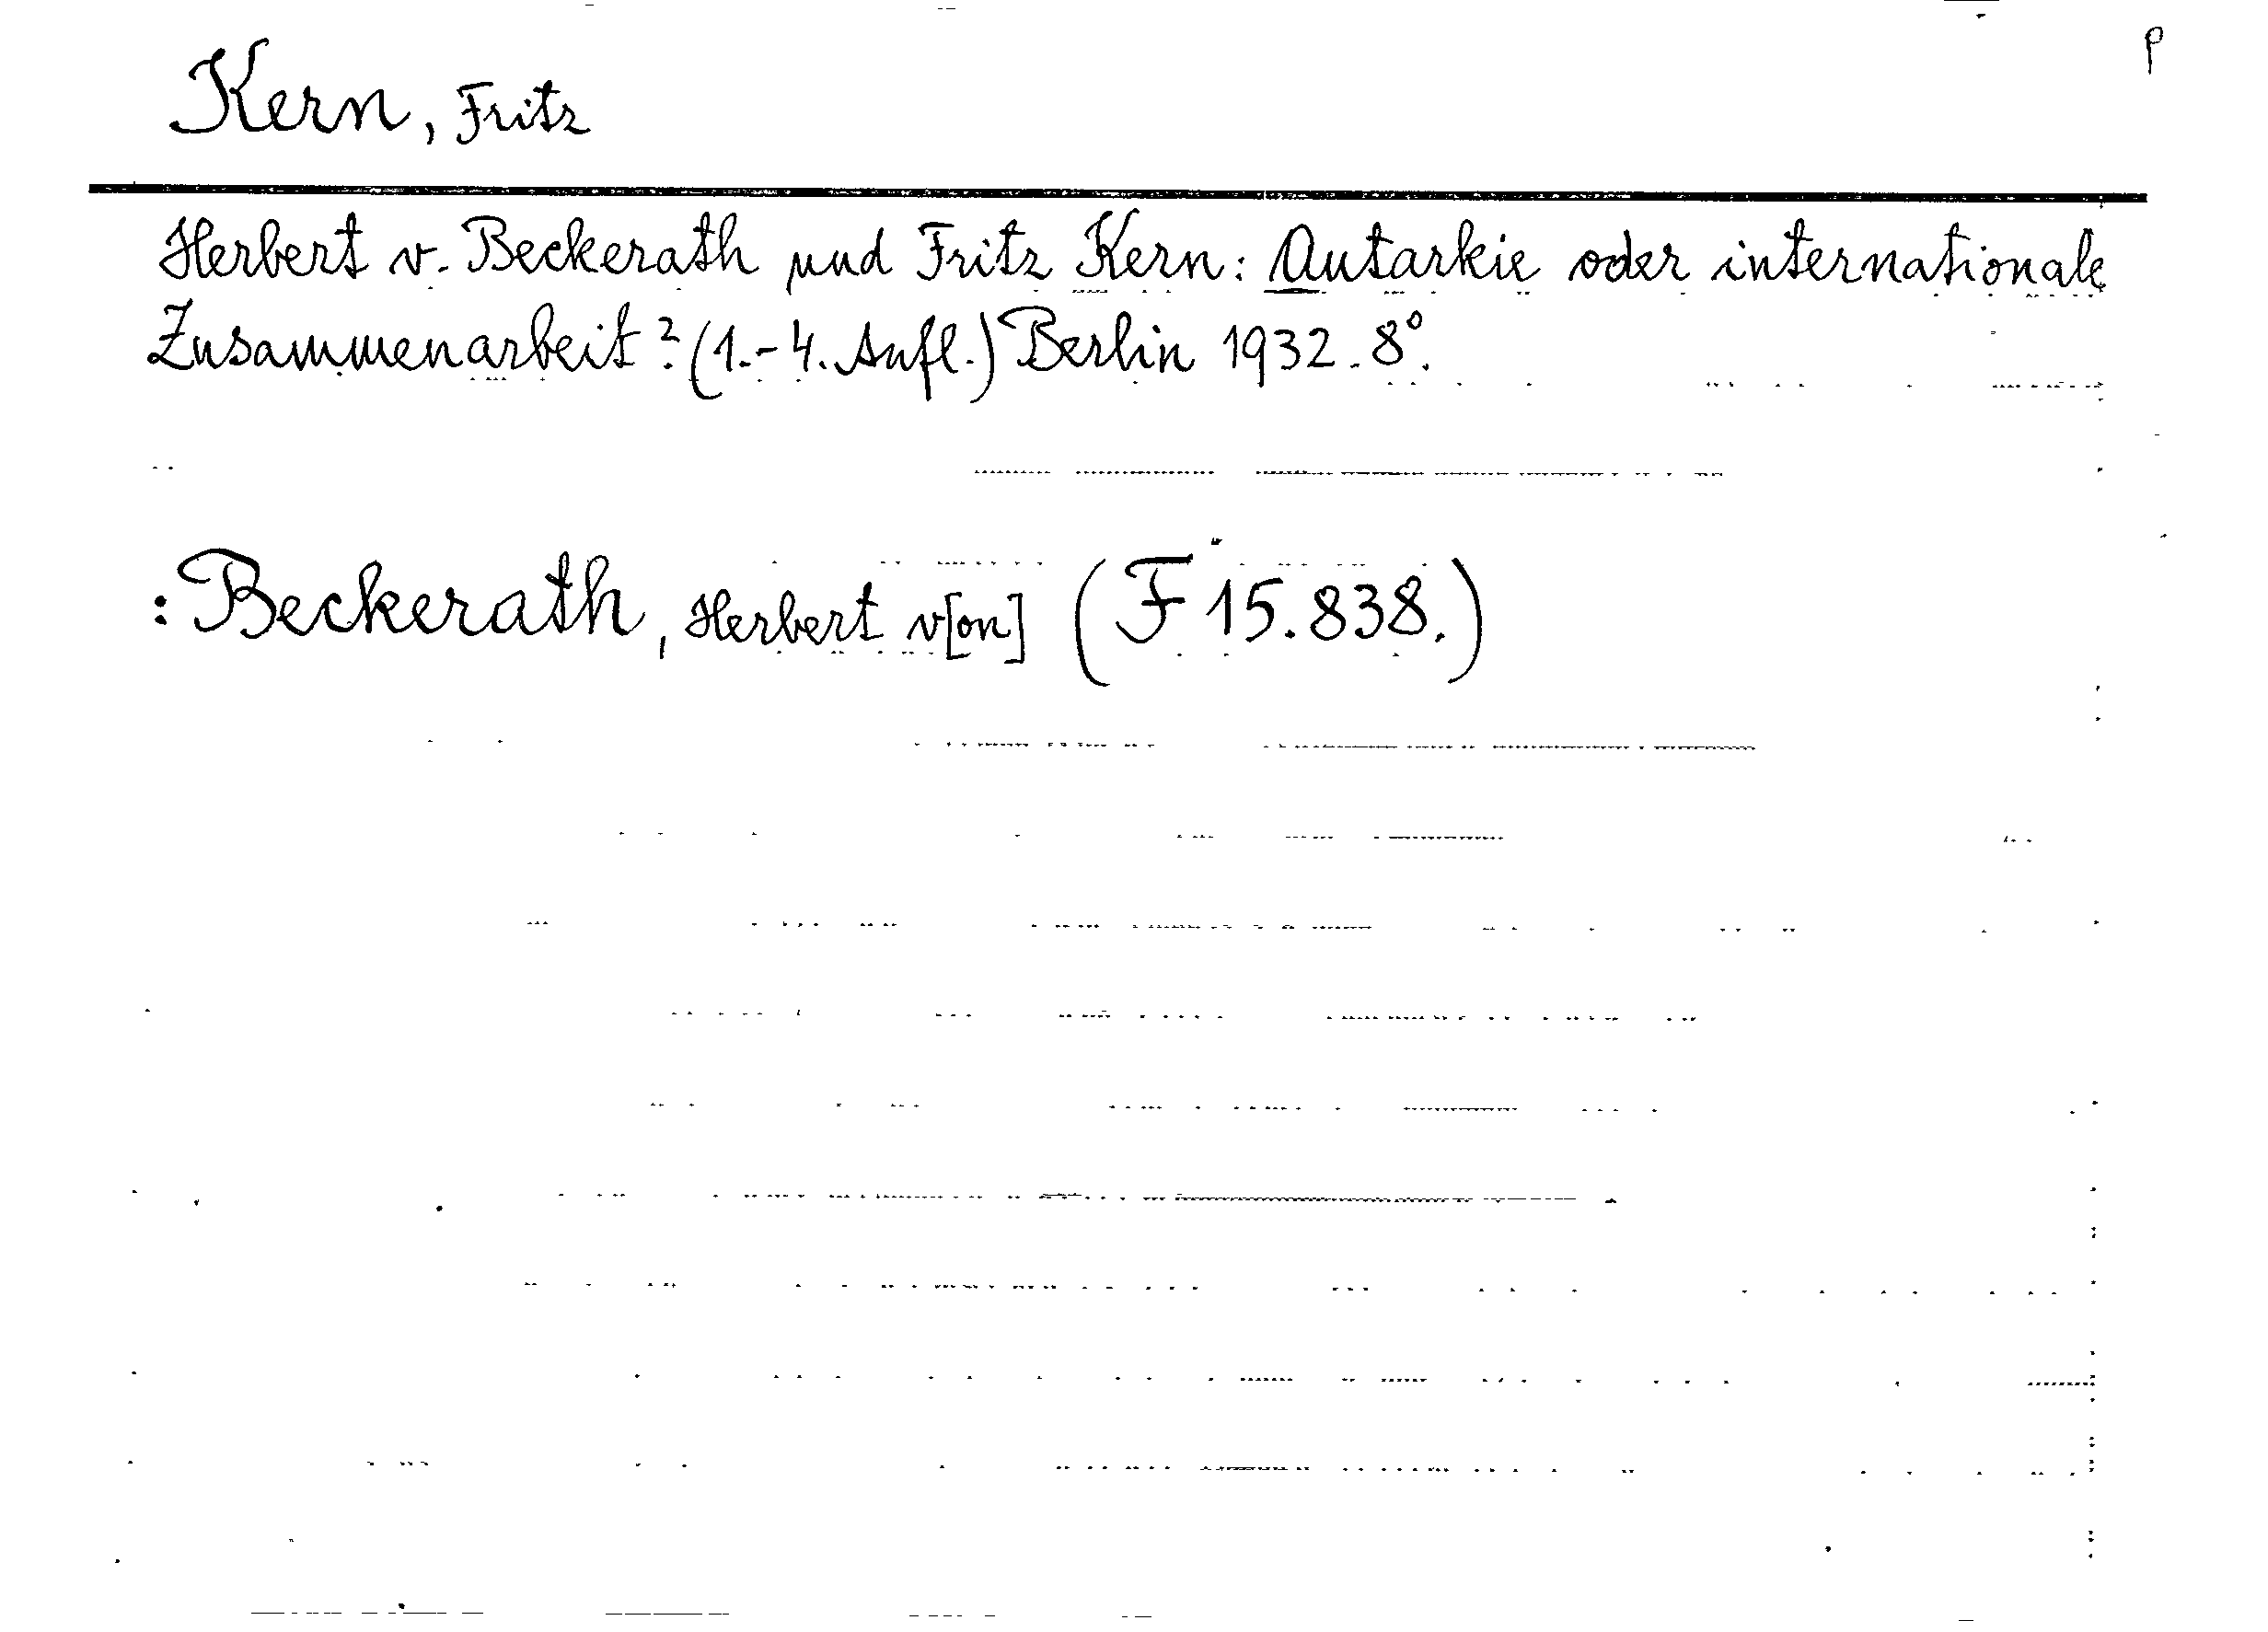 p
Kern, Fritz
Herbert v. Beckerath und Fritz Kern: Autarkie oder internationale
Zusammenarbeit? (1.-4. Aufl.) Berlin 1932. 8°.
: Beckerath, Herbert v[on] (F 15.838.)